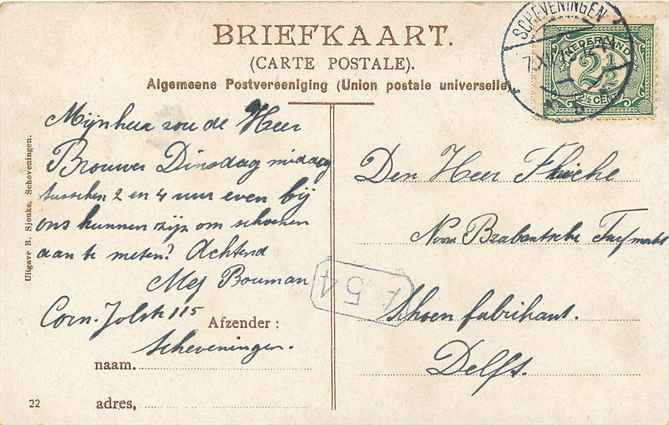 BRIEFKAART.
(CARTE POSTALE).
Algemeene Postvereeniging (Union postale universelle).
SCHEVENINGEN
NEDERLAND
2½
CENT
Mijnheer zou de Heer
Brouwer Dinsdag middag
tusschen 2 en 4 uur even bij
ons kunnen zijn om schoenen
aan te meten? Achtend
Mej Bouman
Corn. Jolstr 115
Scheveningen.
Afzender:
naam.
adres,
22
Uitgave R. Sjouke, Scheveningen.
Den Heer
Noord Brabantsche
Schoen fabrikant.
Delft.
F 54